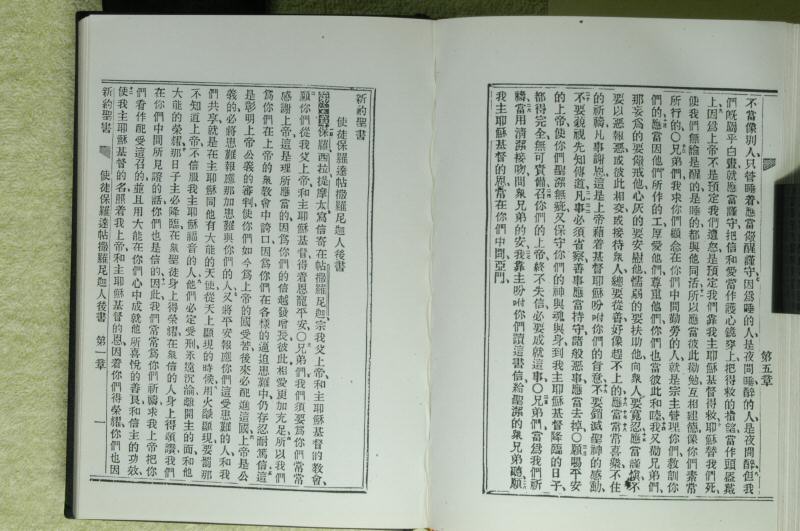 第五章
不當像別人只管睡着應當儆醒謹守因爲睡的人是夜間睡醉的人是夜間醉但我
們旣屬乎白晝就應當謹守把信和愛當作護心鏡穿上把得救的指望當作頭盔戴
上因爲上帝不是預定我們遭怒是預定我們靠我主耶穌基督得救耶穌替我們死
使我們無論是醒的是睡的都與他同活所以應當彼此勸勉互相建德像你們素常
所行的○兄弟們我求你們顧念在你們中間勤勞的人就是宗主管理你們敎訓你
們的應當因他們所作的工厚愛他們尊重他們你們也當彼此和睦我又勸兄弟們
那妄爲的要儆戒他心灰的要安慰他懦弱的要扶助他向衆人要寬忍應當謹愼不
要以惡報惡或彼此相交或接待衆人總要從善好像趕不上的應當常常喜樂不住
的祈禱凡事謝恩這是上帝藉着基督耶穌吩咐你們的旨意不要銷滅聖神的感動
不要藐視先知傳道凡事必須省察善事應當持守諸般惡事應當去掉○願賜平安
的上帝使你們聖潔無疵又保守你們的神與魂與身到我主耶穌基督降臨的日子
都得完全無可責備召你們的上帝終不失信必要成就這事○兄弟們當爲我們祈
禱當用淸潔接吻問衆兄弟的安我靠主吩咐你們讀這書信給聖潔的衆兄弟聽願
我主耶穌基督的恩常在你們中間亞們
新約聖書
使徒保羅達帖撒羅尼迦人後書
保羅西拉提摩太寫信寄在帖撒羅尼迦宗我父上帝和主耶穌基督的敎會
願你們從我父上帝和主耶穌基督得着恩寵平安○兄弟們我們須要爲你們常常
感謝上帝這是理所應當的因爲你們的信越發增長彼此相愛更加充足所以我們
爲你們在上帝的衆敎會中誇口因爲你們在各樣的逼迫患難中仍存忍耐篤信這
是彰明上帝公義的審判使你們如今爲上帝的國受苦後來必配進這國上帝是公
義的必將患難報應那加患難與你們的人又將平安報應你們這受患難的人和我
們共享就是在主耶穌同他有大能的天使從天上顯現的時候用火燄顯現要罰那
不知道上帝不信服我主耶穌福音的人他們必定受刑永遠沉淪離開主的面和他
大能的榮耀那日子主必降臨在衆聖徒身上得榮耀在衆信的人身上得頌讚我們
在你們中間所見證的話你們也是信的因此我們常常爲你們祈禱求我上帝把你
們看作配受這召的並且用大能在你們心中成就他所喜悅的善良和信主的功效
使我主耶穌基督的名照着我上帝和主耶穌基督的恩因着你們得榮耀你們也因
新約聖書
使徒保羅達帖撒羅尼迦人後書
第一章
一